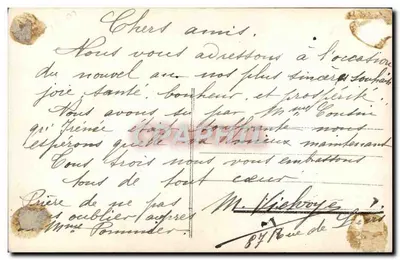 Chers amis.
Nous vous adressons à l'occasion
du nouvel an nos plus sincères souhaits
joie santé bonheur et prospérité.
Nous avons su par Mme Cousin
qu'Irénée nous
espérons qu'elle mieux maintenant
Tous trois nous vous embrassons
tous de tout cœur
Prière de ne pas
oublier auprès
Mme Pommier.
M. Vielvoye
87 Rue de